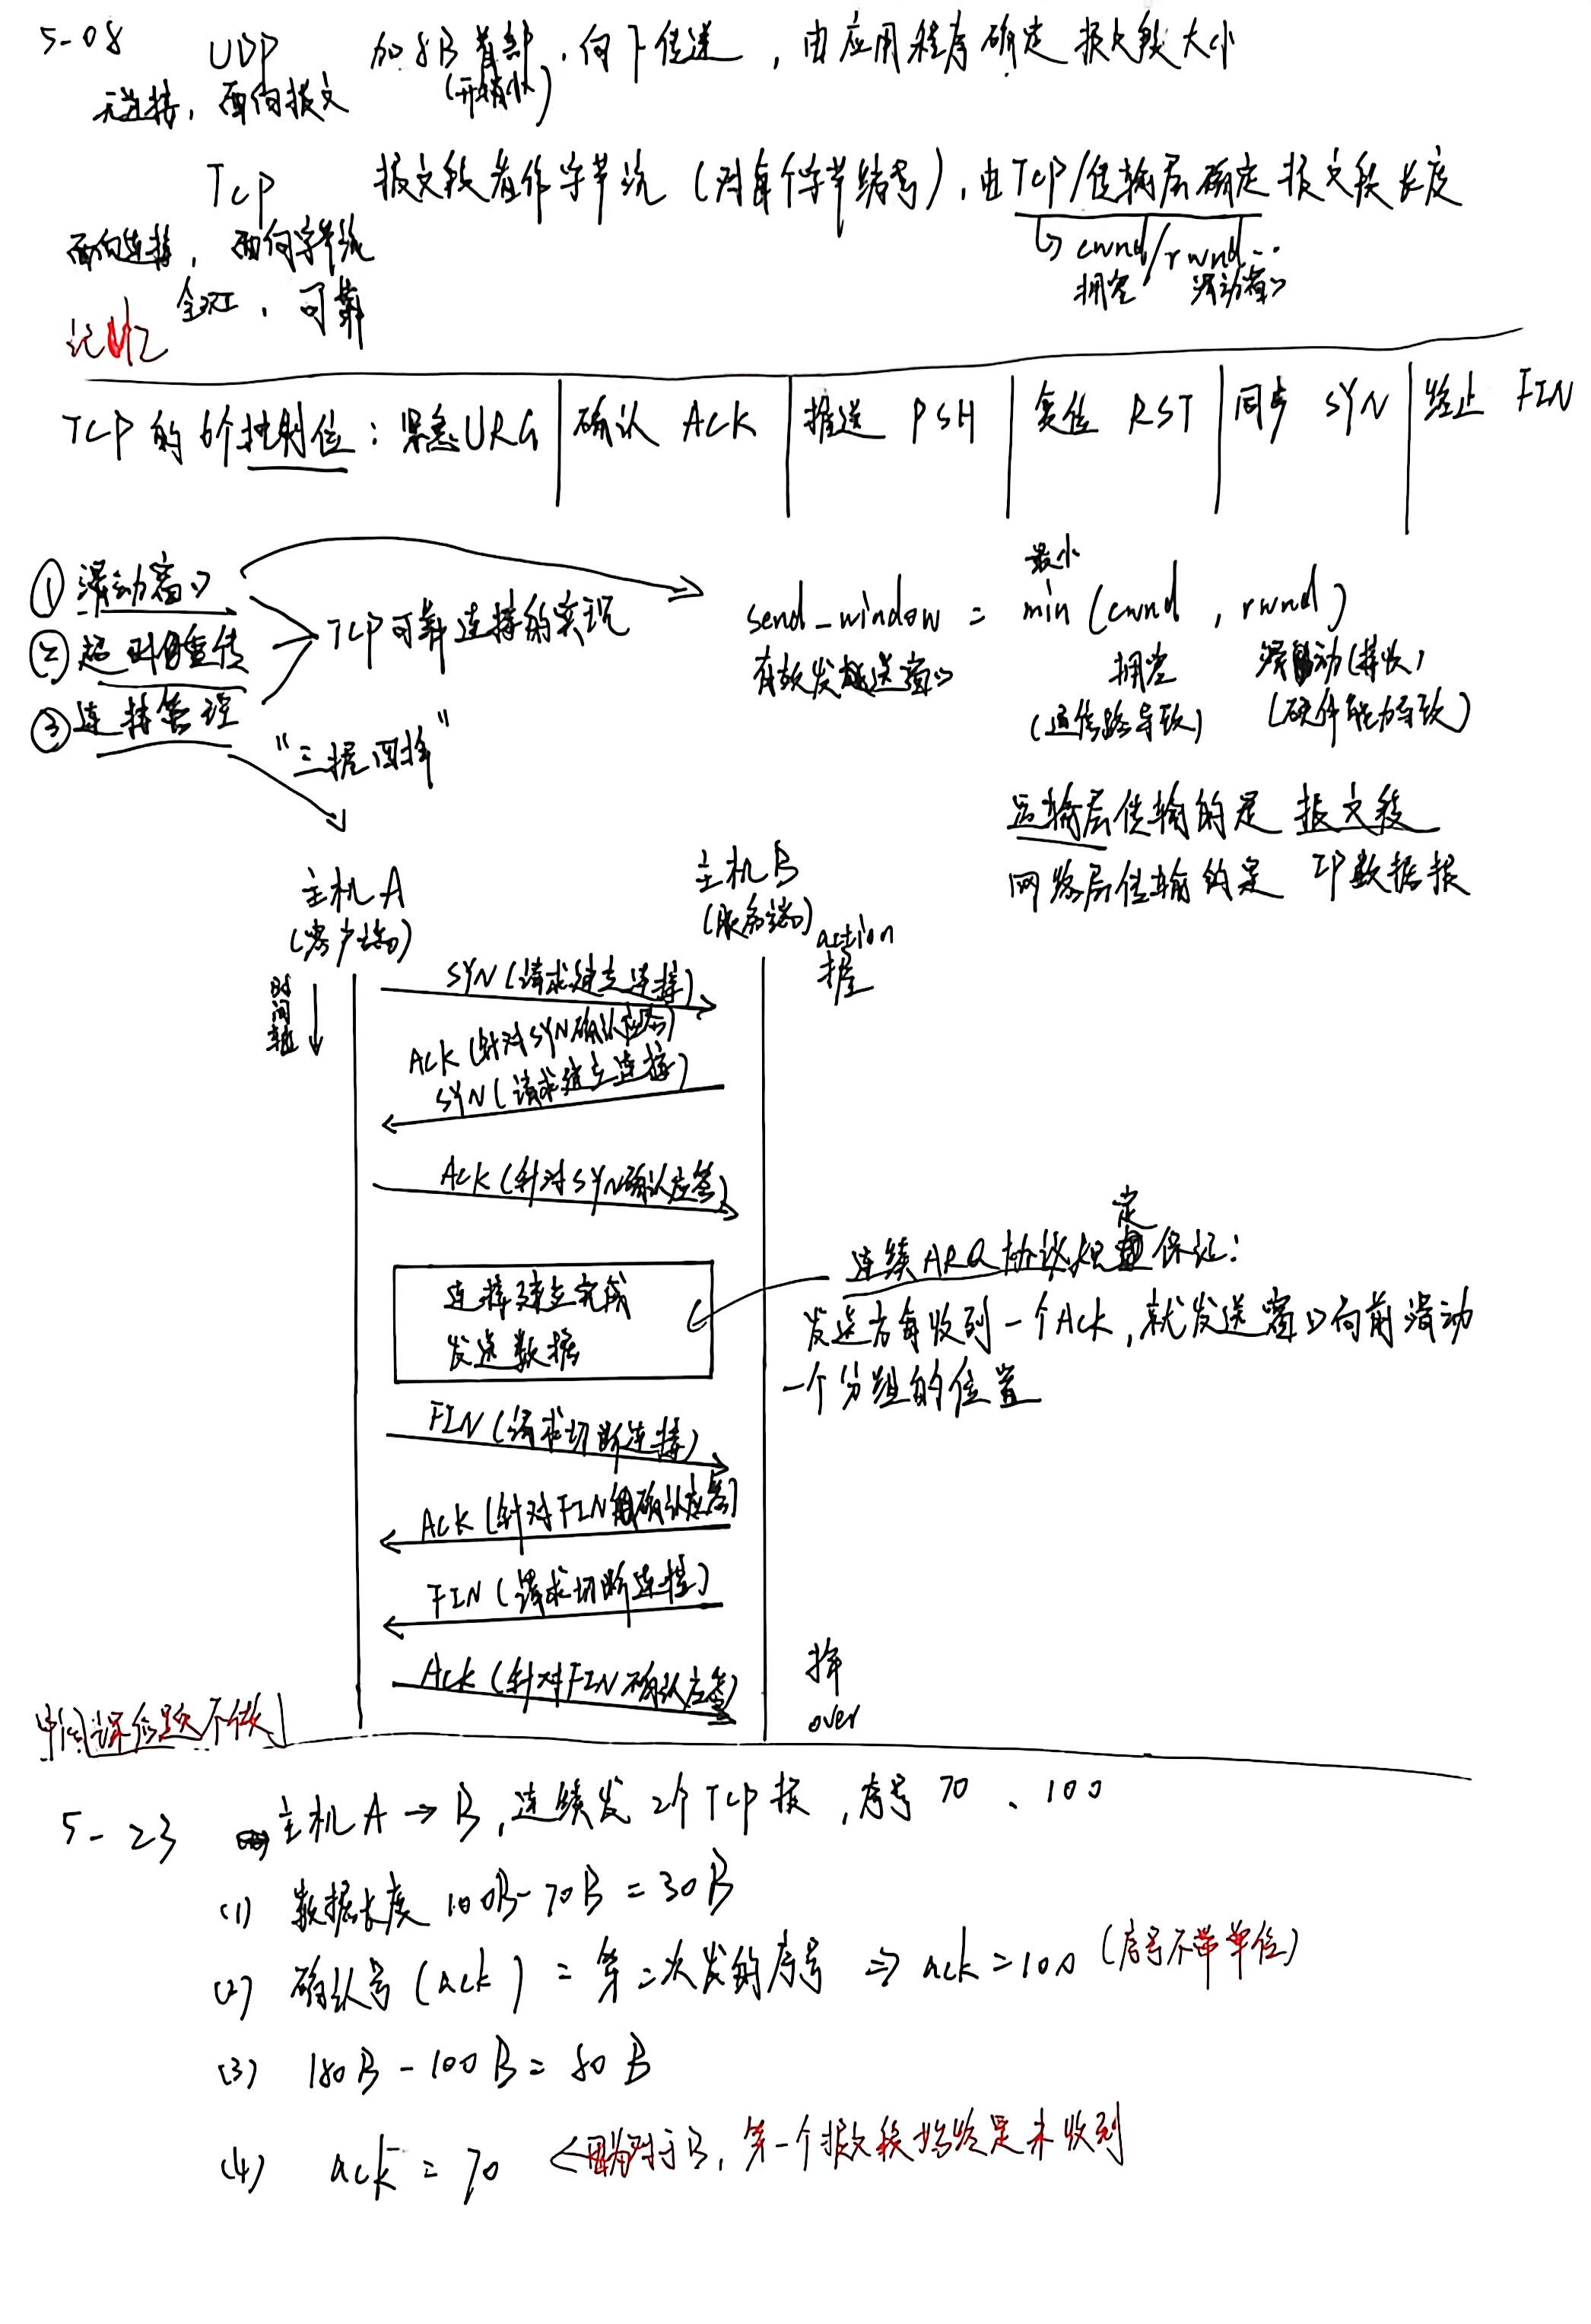 5-08 UDP 加8B首部，向下传送，由应用程序确定报文段大小
无连接，面向报文 (开销小)
TCP 报文段看作字节流（对每个字节编号），由TCP/传输层确定报文段长度
面向连接，面向字节流 ↳ cwnd/rwnd…
全双工，可靠 拥塞 滑动窗口
记忆
TCP的6个控制位：紧急URG | 确认 ACK | 推送 PSH | 复位 RST | 同步 SYN | 终止 FIN
① 滑动窗口
② 超时重传
③ 连接管理
TCP可靠连接的实现
最小
send_window = min (cwnd , rwnd)
有效发送窗口 拥塞 滑动(接收)
(通信路导致) (硬件能力导致)
"三握四挥"
运输层传输的是 报文段
网络层传输的是 IP数据报
主机A
(客户端)
主机B
(服务端)
action
握
时间轴
SYN (请求建立连接)
ACK (针对SYN确认应答)
SYN (请求建立连接)
ACK (针对SYN确认应答)
连接建立完成
发送数据
连续ARQ协议规定保证：
发送方每收到一个ACK，就发送窗口向前滑动
一个分组的位置
FIN (请求切断连接)
ACK (针对FIN确认应答)
FIN (请求切断连接)
ACK (针对FIN确认应答)
挥
over
5-23 主机A→B，连续发2个TCP报，序号 70 、100
(1) 数据长度 100B-70B = 30B
(2) 确认号 (ack) = 第二次发的序号 ⇒ ack = 100 (序号不带单位)
(3) 180B - 100B = 80B
(4) ack = 70 ← 因为对于B，第一个报文段始终是未收到